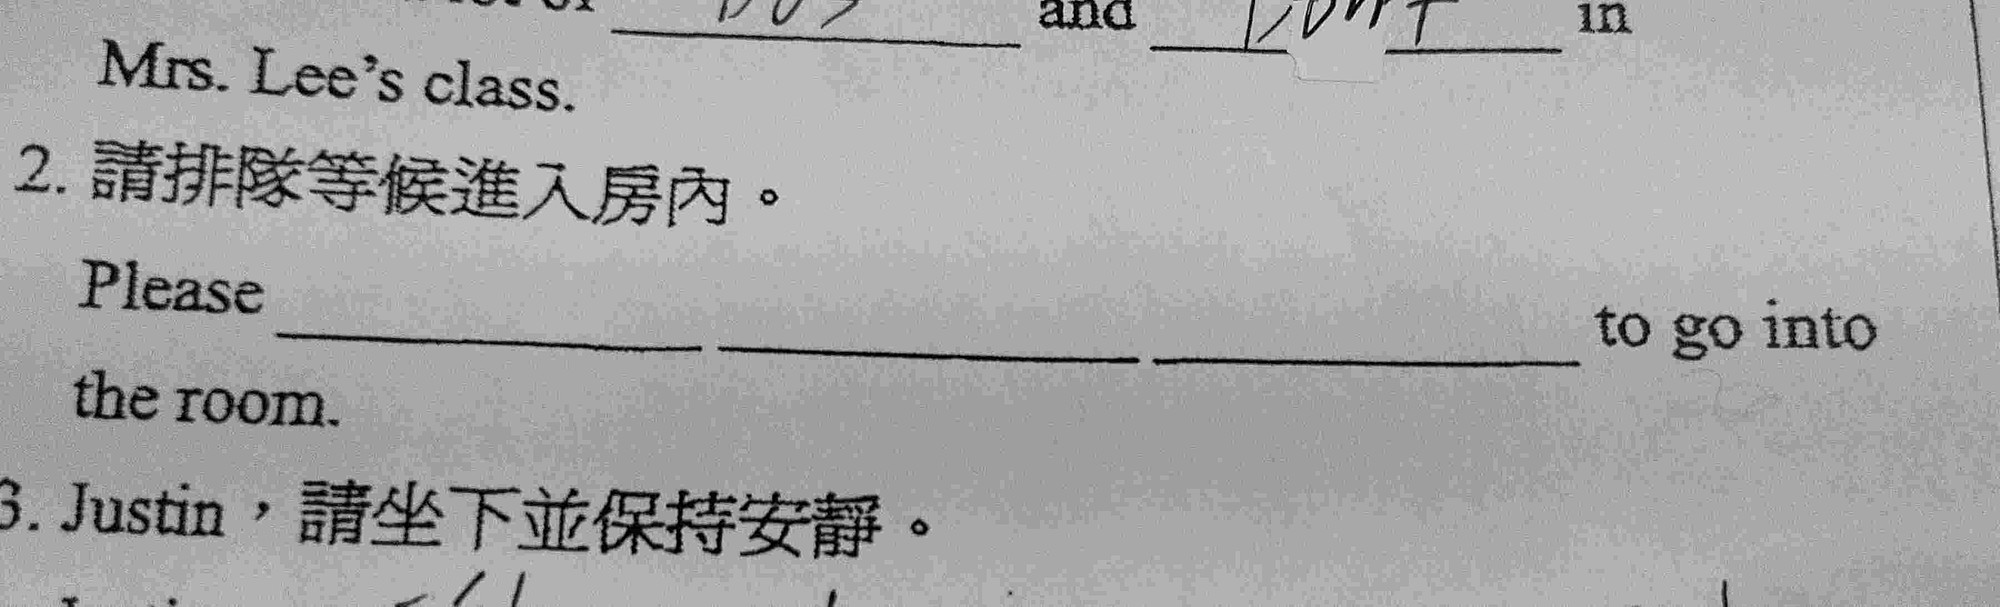 and in
Mrs. Lee's class.
2. 請排隊等候進入房內。
Please to go into
the room.
3. Justin,請坐下並保持安靜。